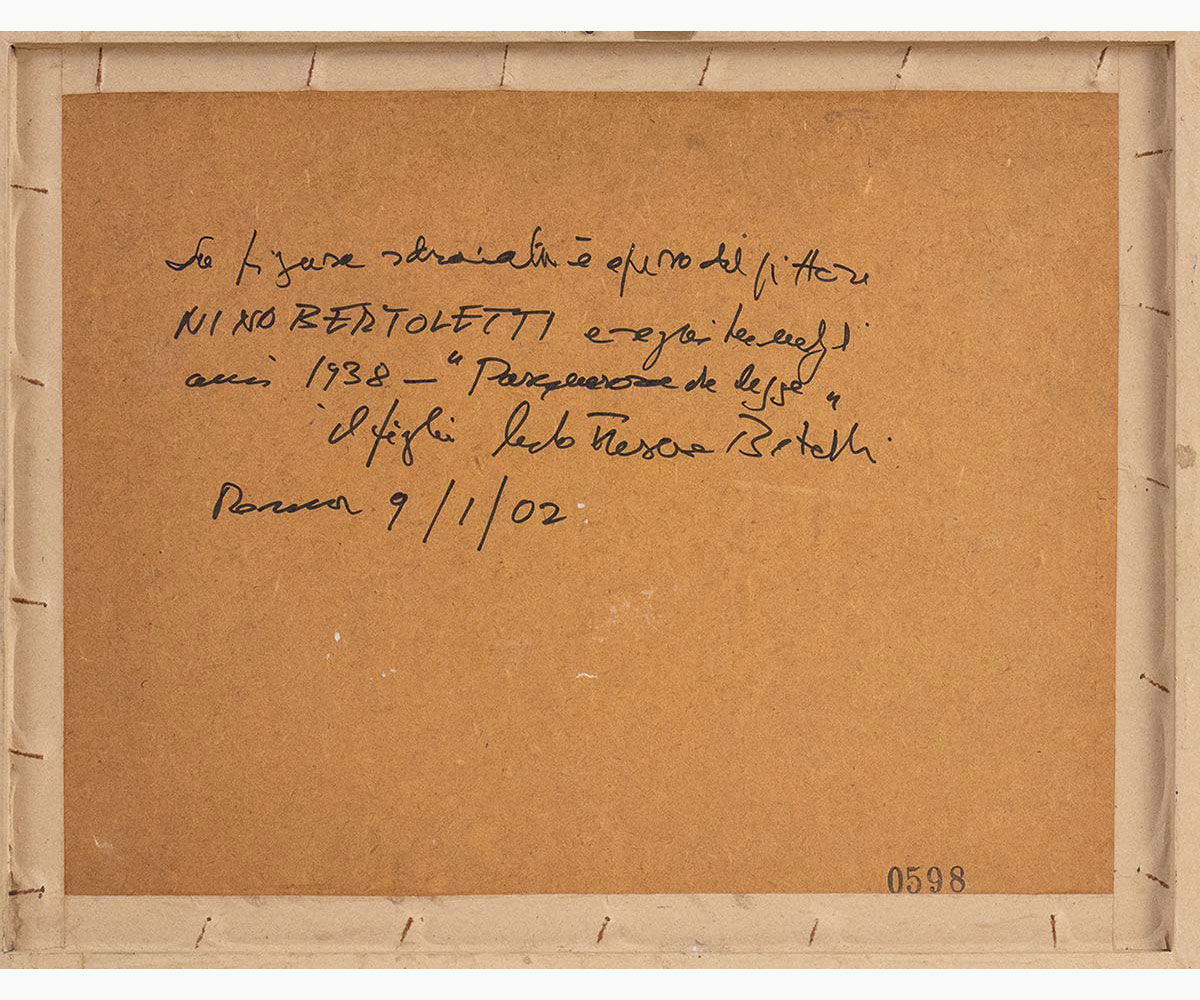 La figura sdraiata è opera del pittore
NINO BERTOLETTI eseguita negli
anni 1938 – "Pasquarosa che legge"
il figlio Bertoletti
Roma 9/1/02
0598